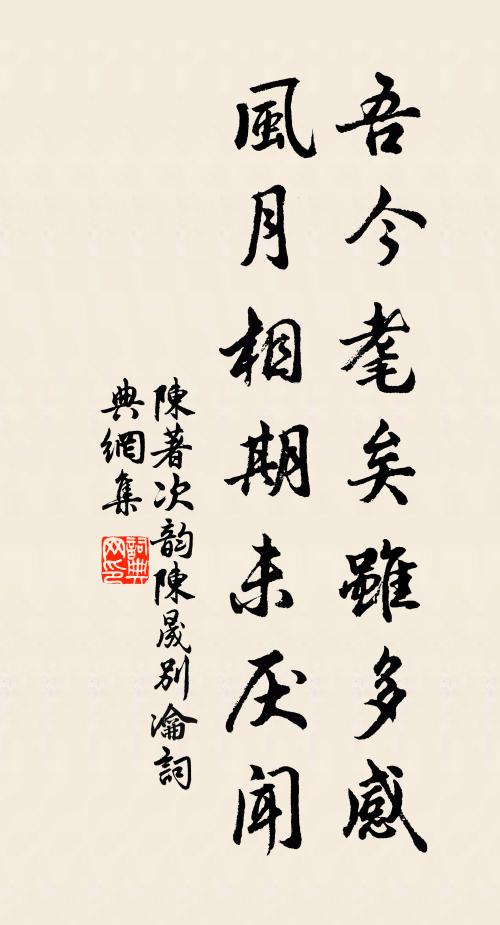 吾今耄矣雖多感
風月相期未厌聞
陳著次韵陳晟別瀹詞
典網集
詞典网印